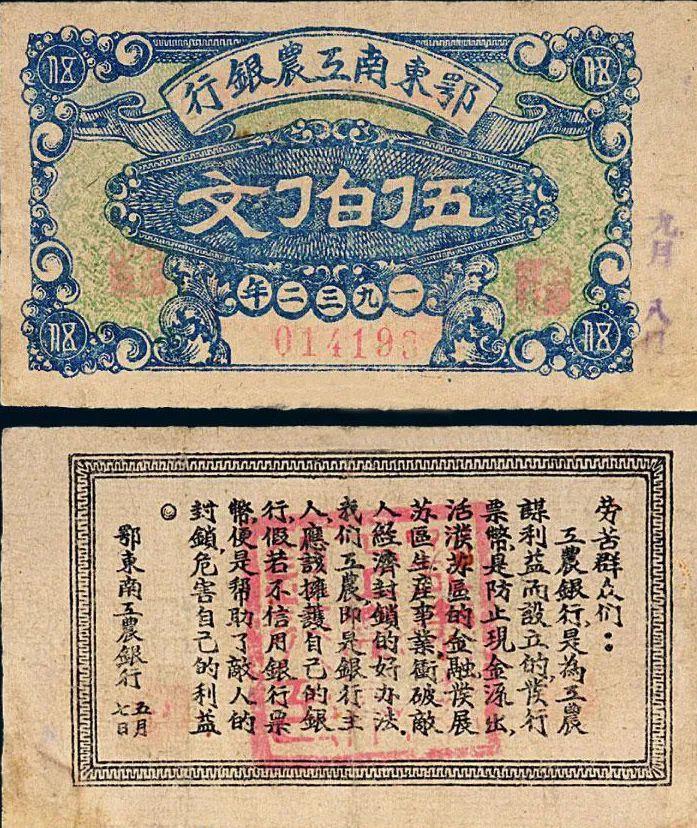 鄂東南工農銀行
伍佰文
一九三二年
014193
九月
八日
劳苦群众们：
工農銀行,是為工農
謀利益而設立的,發行
票幣,是防止現金流出,
活潑苏區的金融,發展
苏區生產事業,衝破敵
人經濟封鎖的好办法。
我们工農即是銀行主
人,應該擁護自己的銀
行,假若不信用銀行票
幣,便是幫助了敵人的
封鎖,危害自己的利益
。
鄂東南工農銀行
五月
七日